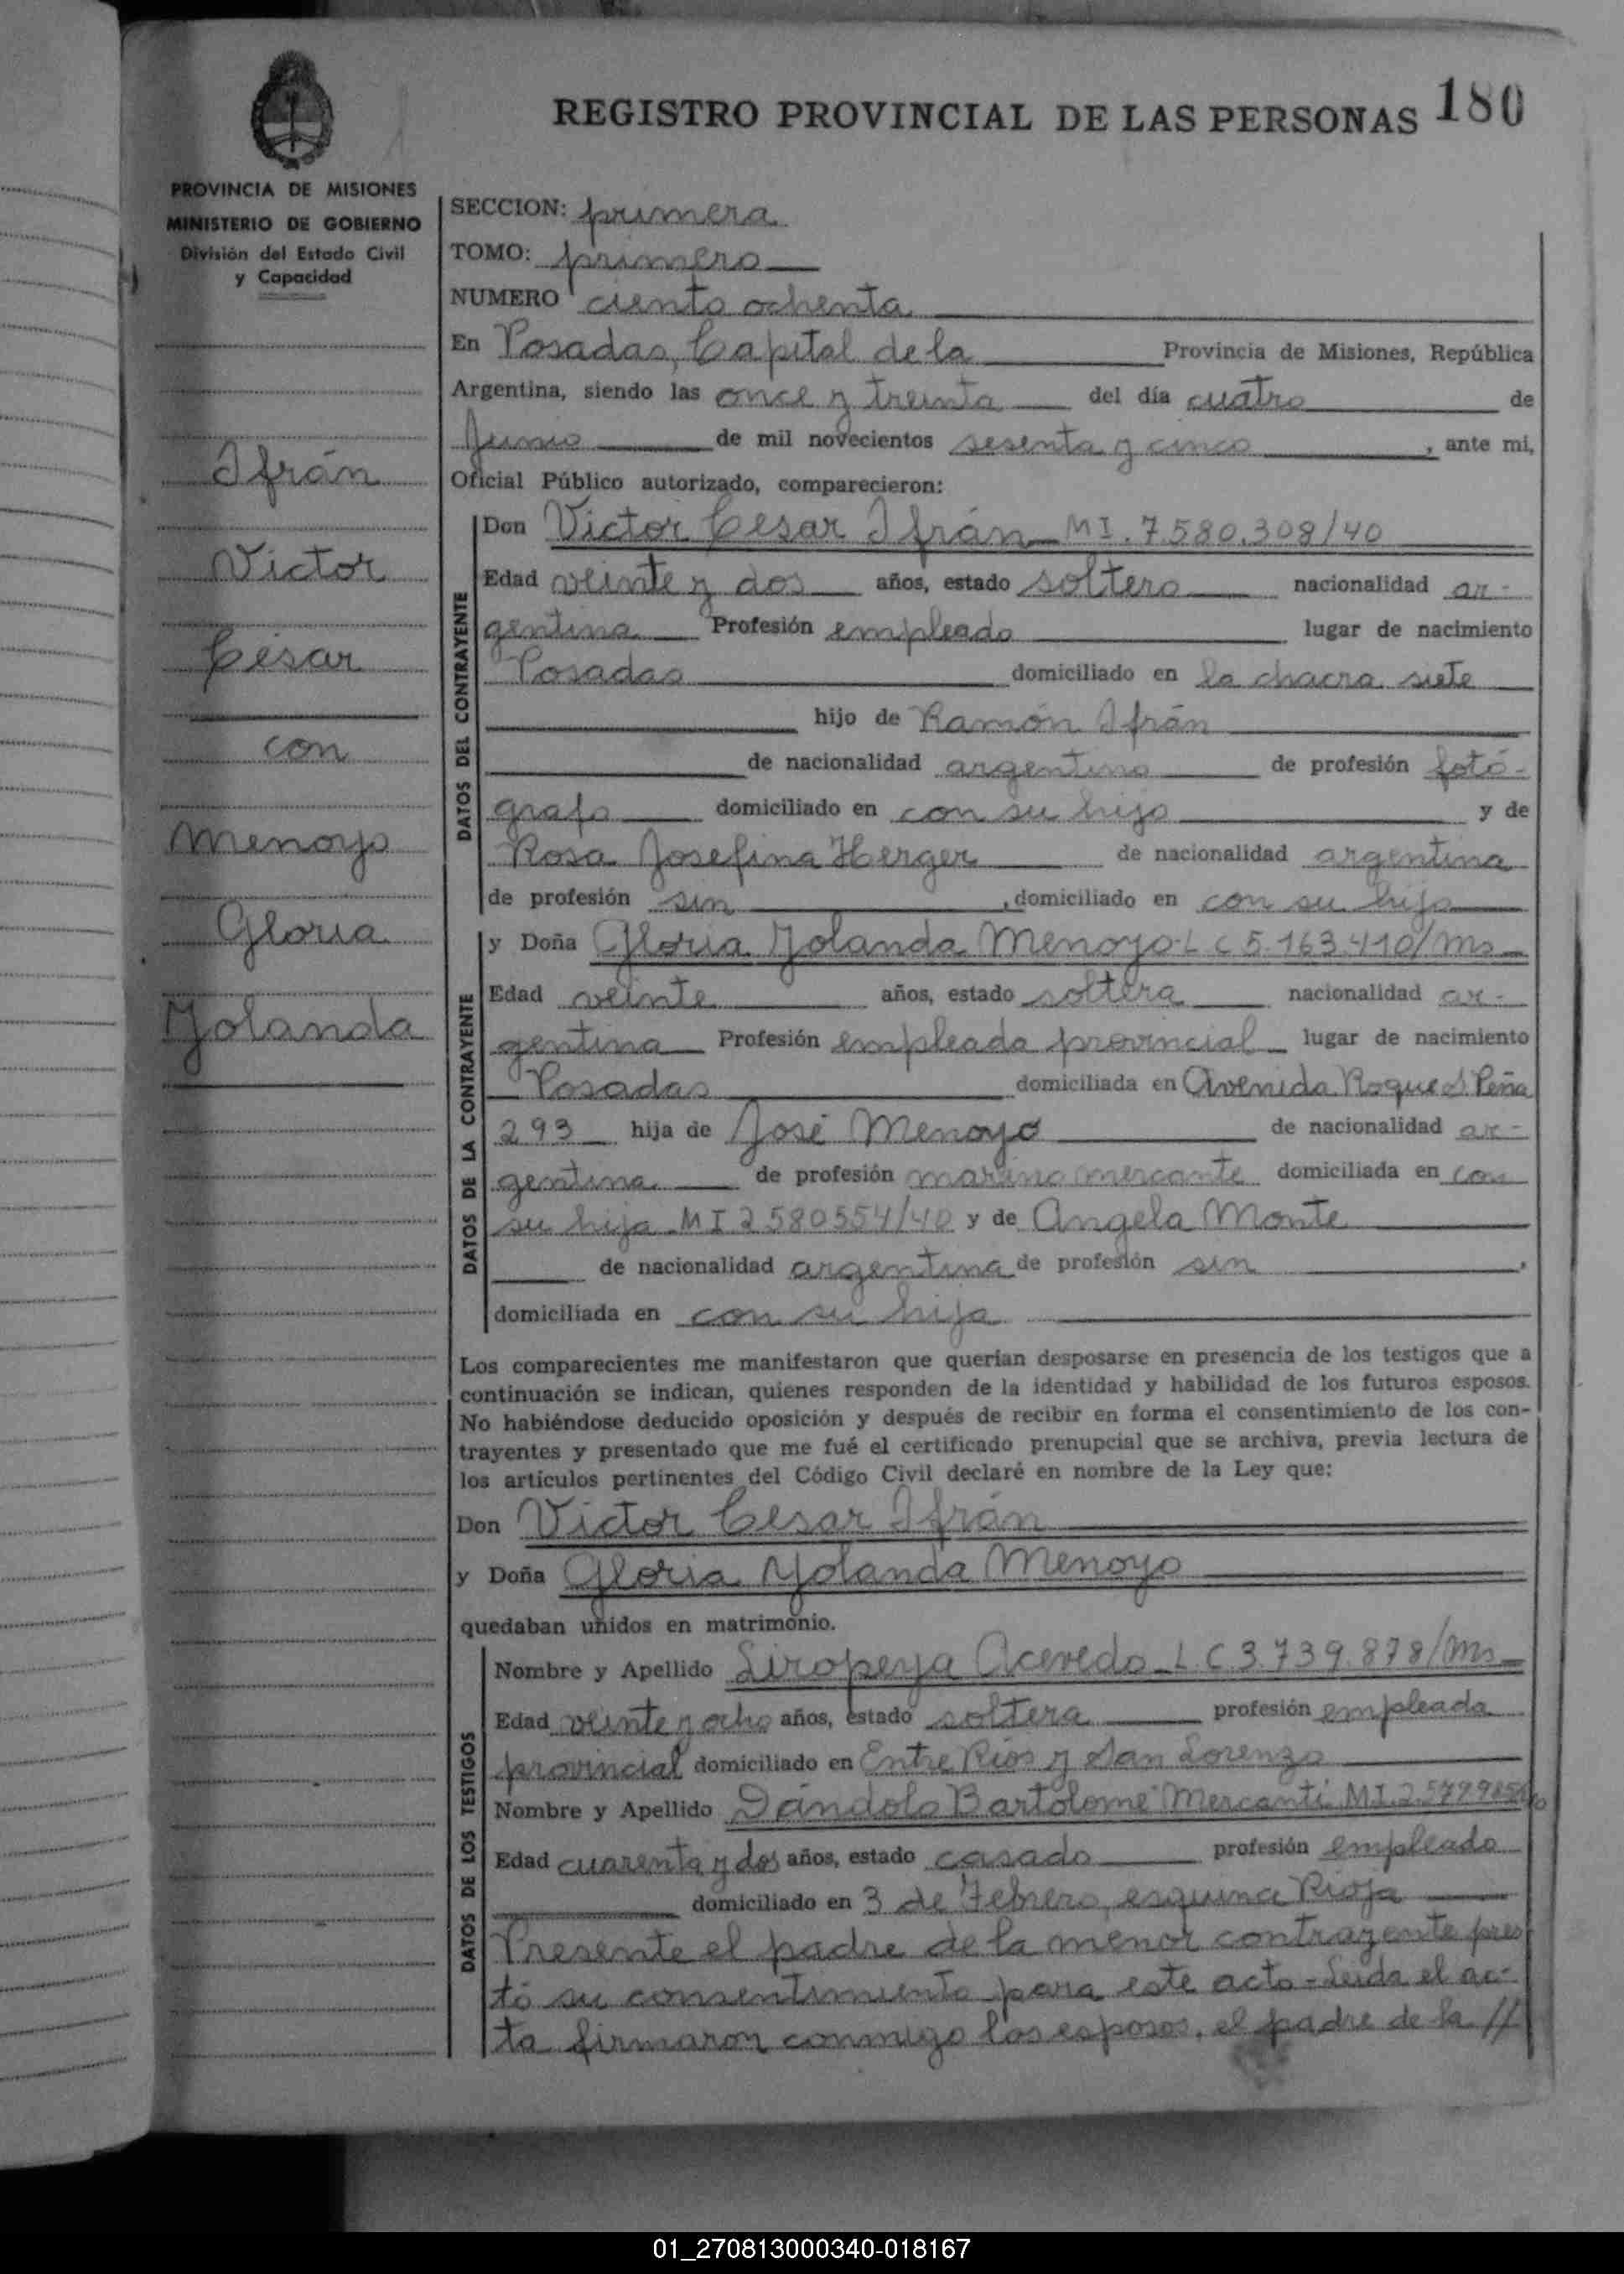 REGISTRO PROVINCIAL DE LAS PERSONAS 180
PROVINCIA DE MISIONES
MINISTERIO DE GOBIERNO
División del Estado Civil
y Capacidad
Ifrán
Victor
César
con
Menoyo
Gloria
Yolanda
SECCION: primera
TOMO: primero
NUMERO ciento ochenta
En Posadas, Capital de la Provincia de Misiones, República
Argentina, siendo las once y treinta del día cuatro de
Junio de mil novecientos sesenta y cinco, ante mi,
Oficial Público autorizado, comparecieron:
DATOS DEL CONTRAYENTE
Don Victor Cesar Ifrán MI. 7.580.308/40
Edad veinte y dos años, estado soltero nacionalidad ar-
gentina Profesión empleado lugar de nacimiento
Posadas domiciliado en la chacra siete
hijo de Ramón Ifrán
de nacionalidad argentino de profesión fotó-
grafo domiciliado en con su hijo y de
Rosa Josefina Herger de nacionalidad argentina
de profesión sin, domiciliado en con su hijo
DATOS DE LA CONTRAYENTE
y Doña Gloria Yolanda Menoyo L C 5.163.410/Ms
Edad veinte años, estado soltera nacionalidad ar-
gentina Profesión empleada provincial lugar de nacimiento
Posadas domiciliada en Avenida Roque S Peña
293 hija de José Menoyo de nacionalidad ar-
gentina de profesión marino mercante domiciliada en con
su hija MI 2580554/40 y de Angela Monte
de nacionalidad argentina de profesión sin,
domiciliada en con su hija
Los comparecientes me manifestaron que querían desposarse en presencia de los testigos que a
continuación se indican, quienes responden de la identidad y habilidad de los futuros esposos.
No habiéndose deducido oposición y después de recibir en forma el consentimiento de los con-
trayentes y presentado que me fué el certificado prenupcial que se archiva, previa lectura de
los artículos pertinentes del Código Civil declaré en nombre de la Ley que:
Don Victor Cesar Ifrán
y Doña Gloria Yolanda Menoyo
quedaban unidos en matrimonio.
DATOS DE LOS TESTIGOS
Nombre y Apellido Liropeya Acevedo L C 3.739.878/Ms
Edad veinte y ocho años, estado soltera profesión empleada
provincial domiciliado en Entre Rios y San Lorenzo
Nombre y Apellido Dándolo Bartolomé Mercanti MI.
Edad cuarenta y dos años, estado casado profesión empleado
domiciliado en 3 de Febrero, esquina Rioja
Presente el padre de la menor contrayente pres
tó su consentimiento para este acto - Leida el ac-
ta firmaron conmigo los esposos, el padre de la //
01_270813000340-018167